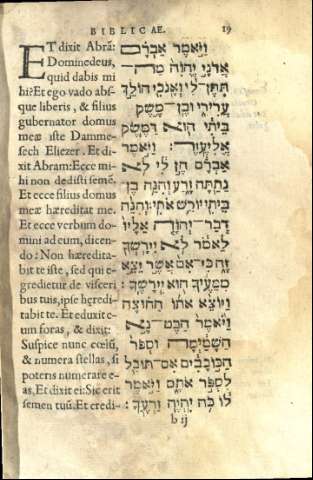 BIBLICAE. 19
ET dixit Abrã:
Dominedeus,
quid dabis mi
hi? Et ego vado abs
que liberis, & filius
gubernator domus
meæ iste Damme-
sech Eliezer. Et di
xit Abram: Ecce mi
hi non dedisti semẽ,
Et ecce filius domus
meæ hæreditat me.
Et ecce verbum do
mini ad eum, dicen
do: Non hæredita-
bit te iste, sed qui e-
gredietur de visceri
bus tuis, ipse heredi
tabit te. Et eduxit e-
um foras, & dixit:
Suspice nunc cœlũ,
& numera stellas, si
poteris numerare e-
as, Et dixit ei: Sic erit
semen tuũ. Et credi-
וַיֹּאמֶר אַבְרָם
אֲדֹנָי יֱהוִה מַה
תִּתֶּן־לִי וְאָנֹכִי הוֹלֵךְ
עֲרִירִי וּבֶן־מֶשֶׁק
בֵּיתִי הוּא דַּמֶּשֶׂק
אֱלִיעֶזֶר: וַיֹּאמֶר
אַבְרָם הֵן לִי לֹא
נָתַתָּה זָרַע וְהִנֵּה בֶן
בֵּיתִי יוֹרֵשׁ אֹתִי: וְהִנֵּה
דְבַר־יְהוָה אֵלָיו
לֵאמֹר לֹא יִירָשְׁךָ
זֶה כִּי־אִם אֲשֶׁר יֵצֵא
מִמֵּעֶיךָ הוּא יִירָשֶׁךָ:
וַיּוֹצֵא אֹתוֹ הַחוּצָה
וַיֹּאמֶר הַבֶּט־נָא
הַשָּׁמַיְמָה וּסְפֹר
הַכּוֹכָבִים אִם־תּוּכַל
לִסְפֹּר אֹתָם וַיֹּאמֶר
לוֹ כֹּה יִהְיֶה זַרְעֶךָ:
b ij